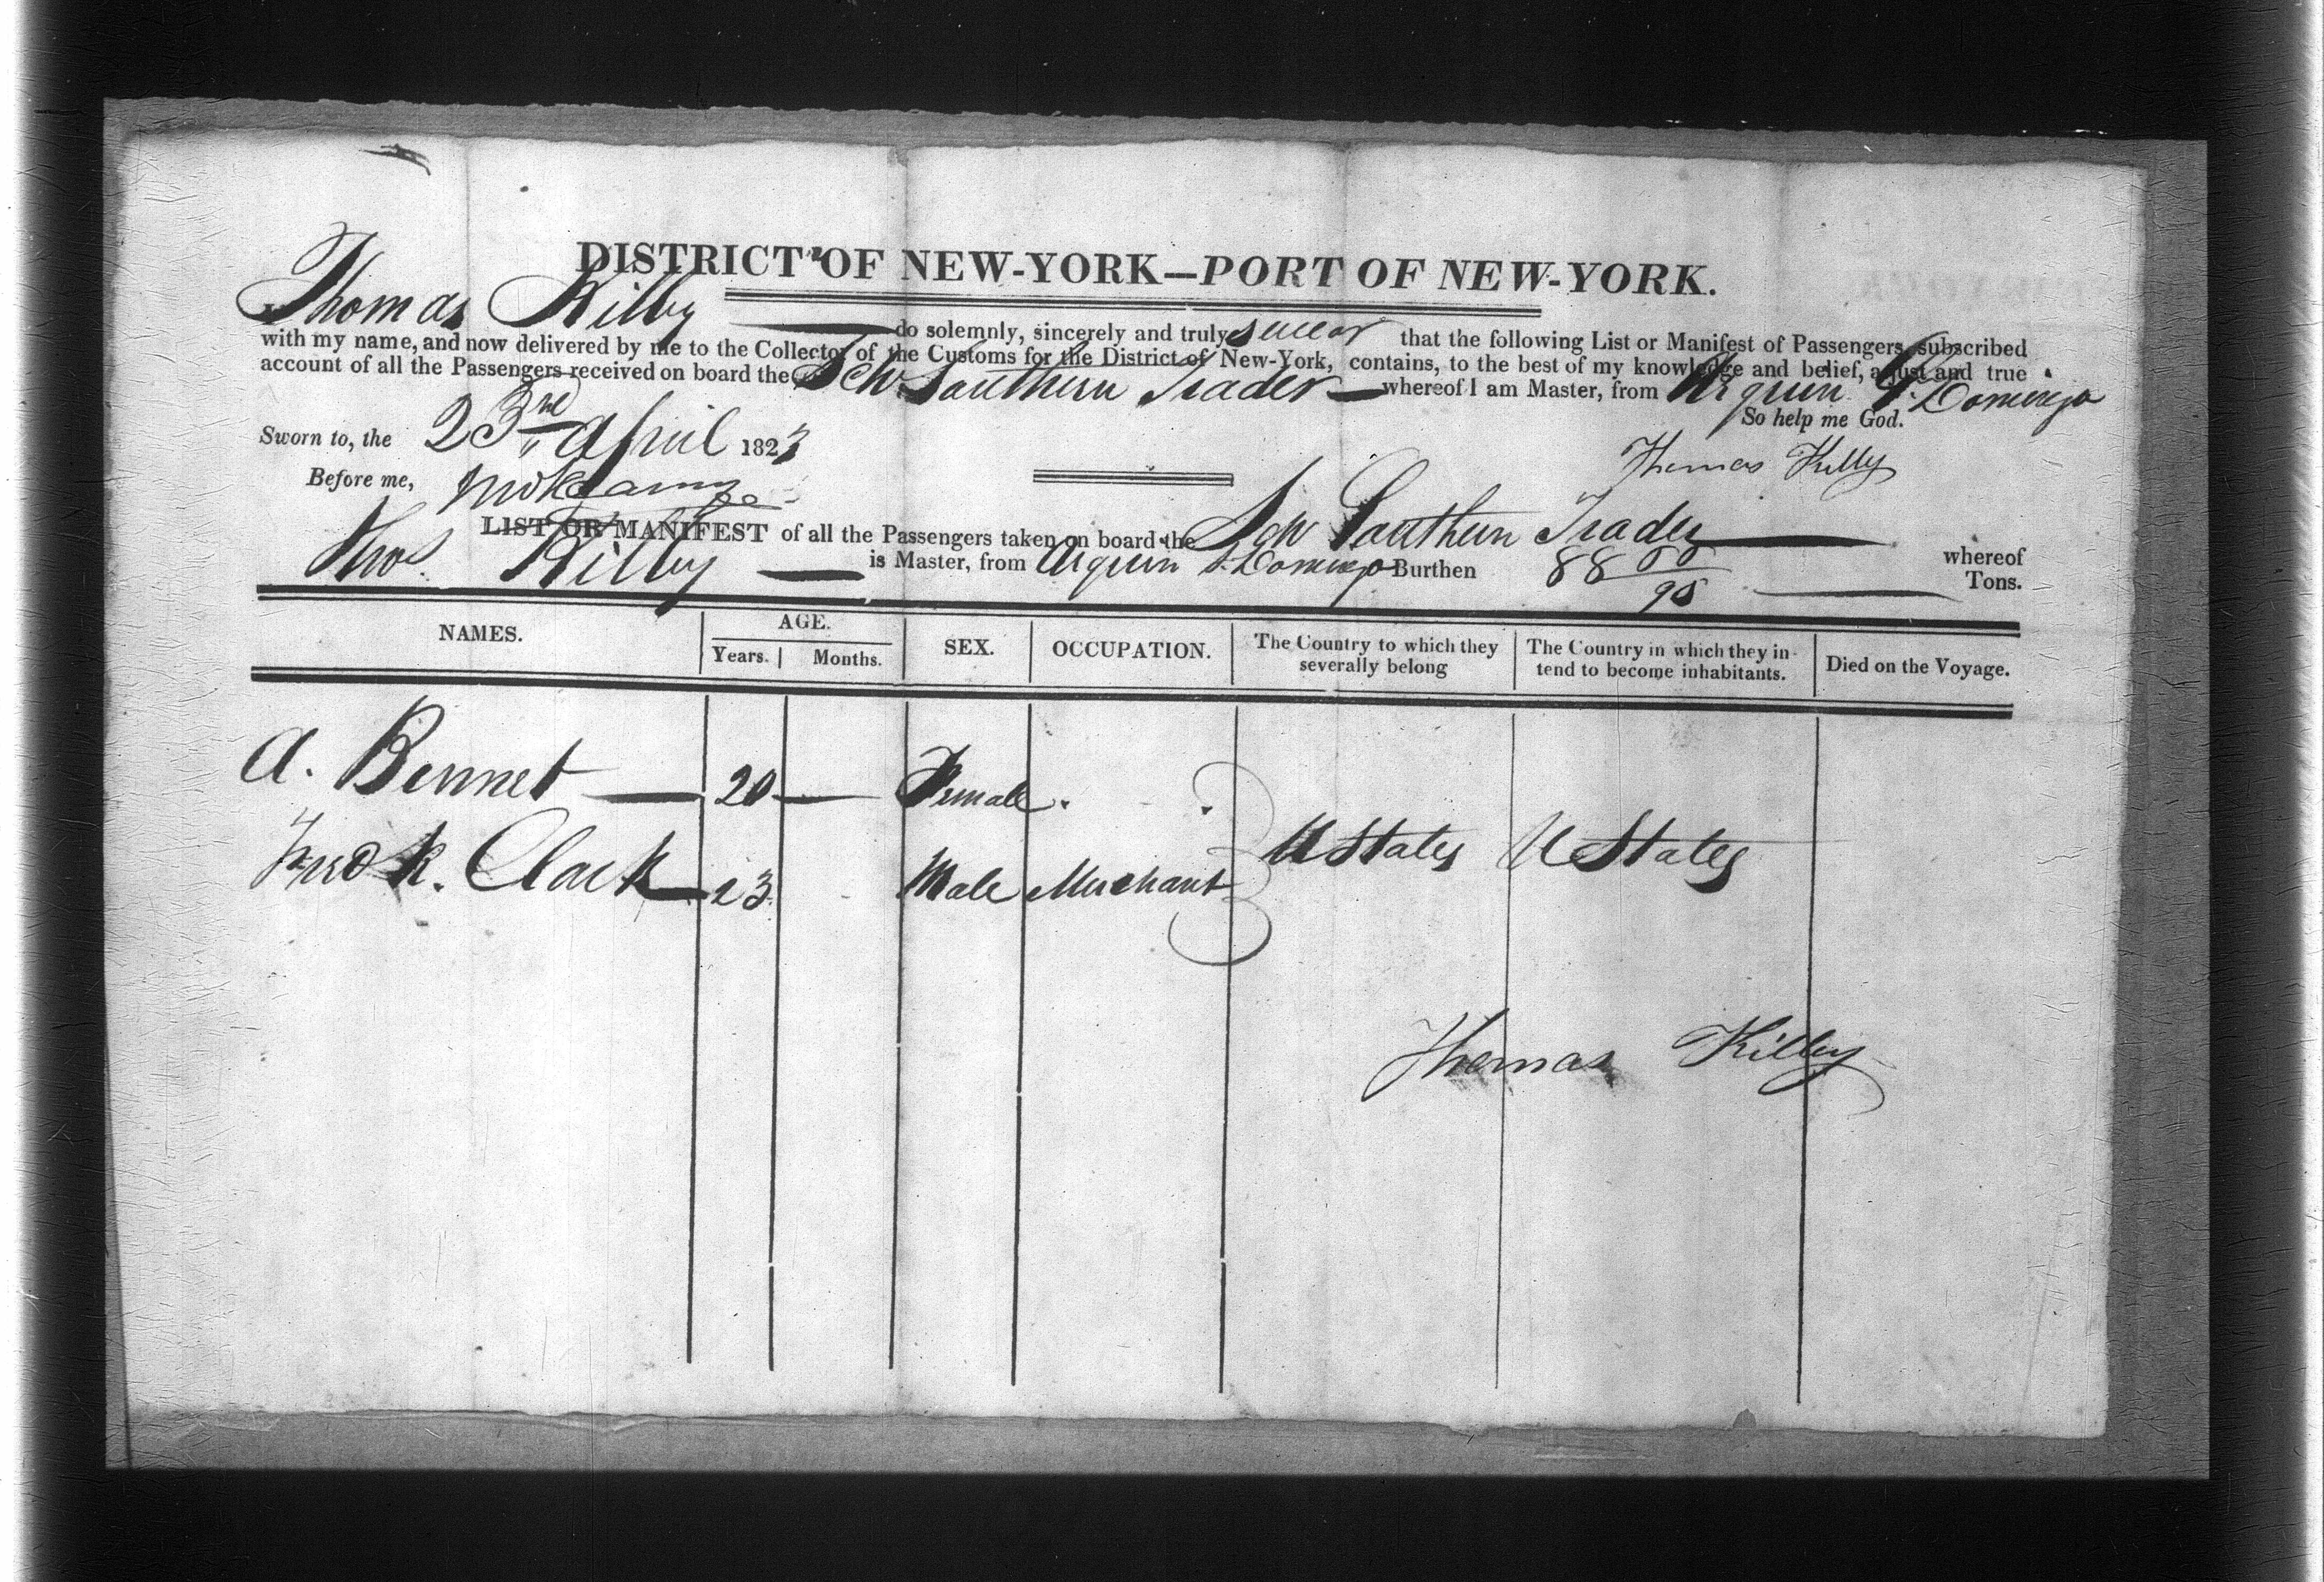 DISTRICT OF NEW-YORK—PORT OF NEW-YORK.
I, Thomas Kilby do solemnly, sincerely and truly swear that the following List or Manifest of Passengers, subscribed
with my name, and now delivered by me to the Collector of the Customs for the District of New-York, contains, to the best of my knowledge and belief, a just and true
account of all the Passengers received on board the Schr Southern Trader whereof I am Master, from Arquin St. Domingo
So help me God.
Sworn to, the 23rd April 1823
Thomas Kilby
Before me,
LIST OR MANIFEST of all the Passengers taken on board the Schr Southern Trader whereof
Thos Kilby is Master, from Arquin St. Domingo Burthen 88 /95 Tons.
NAMES. AGE. SEX. OCCUPATION. The Country to which they severally belong The Country in which they intend to become inhabitants. Died on the Voyage.
Years. Months.
A. Bennet — 20 — Female.
U States U States
Fredk. Clark — 23 Male Merchant
Thomas Kilby